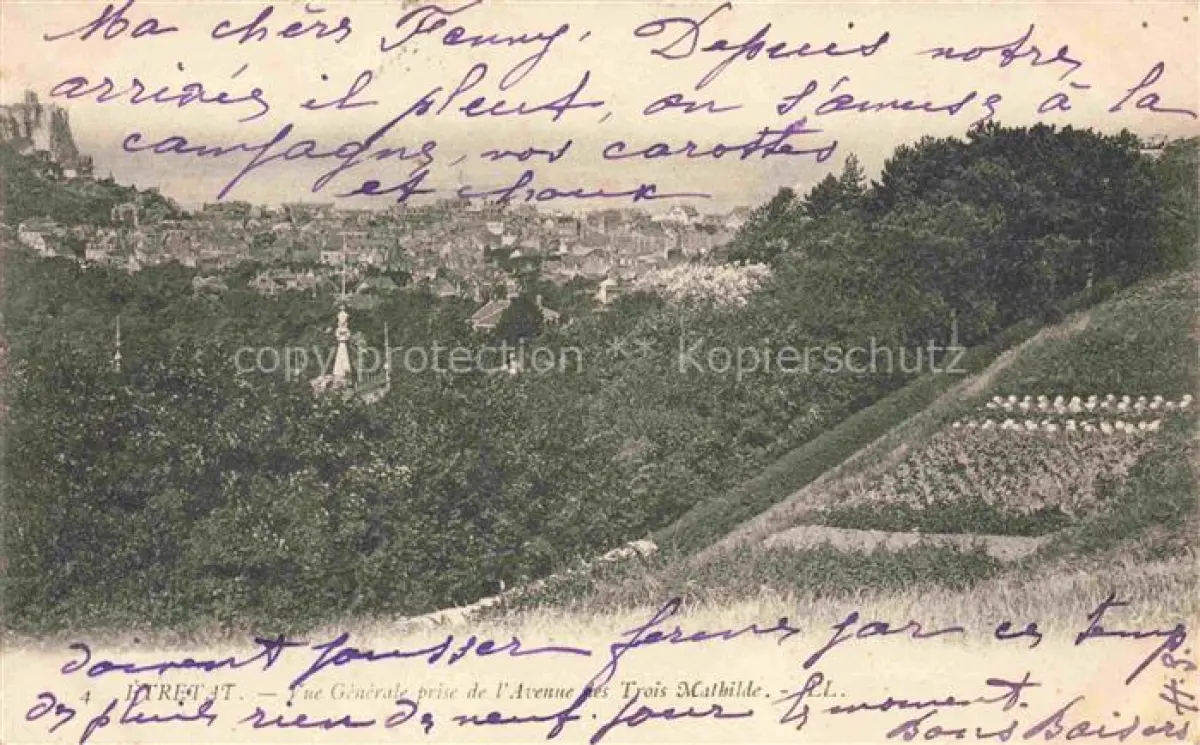 Ma chèrs Fenny. Depuis notre
arrivée il pleut, on s'amuse à la
campagne, vos carottes
et choux
copy protection ** Kopierschutz
doivent pousser ferme par ce temp
4 ETRETAT. — Vue Générale prise de l'Avenue des Trois Mathilde. - LL.
de pluis rien de neuf pour le moment.
Bons Baisers
H.S.